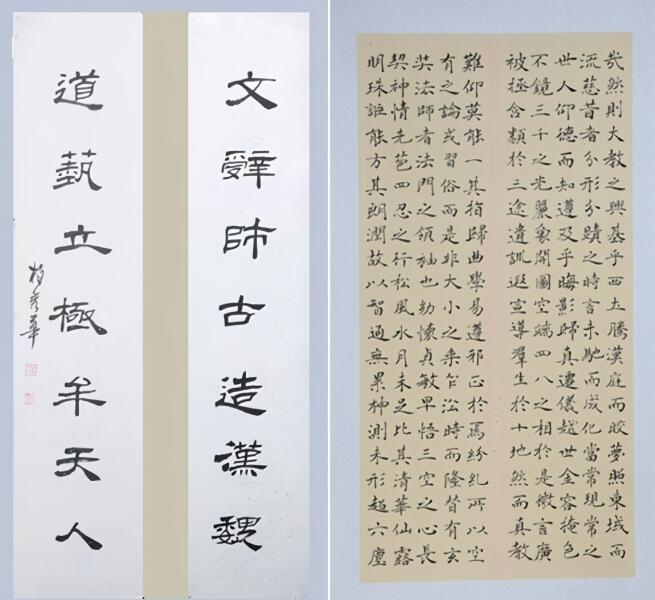 文辭師古造漢魏
道蓺立極牟天人
哉然則大教之興基乎西土騰漢庭而皎夢照東域而
流慈昔者分形分蹟之時言未馳而成化當常現常之
世人仰德而知遵及乎晦影歸真遷儀越世金容掩色
不鏡三千之光麗象開圖空端四八之相於是微言廣
被拯含類於三途遺訓遐宣導羣生於十地然而真教
難仰莫能一其指歸曲學易遵邪正於焉紛糺所以空
有之論或習俗而是非大小之乘乍沿時而隆替有玄
奘法師者法門之領袖也幼懷貞敏早悟三空之心長
契神情先苞四忍之行松風水月未足比其清華仙露
明珠詎能方其朗潤故以智通無累神測未形超六塵